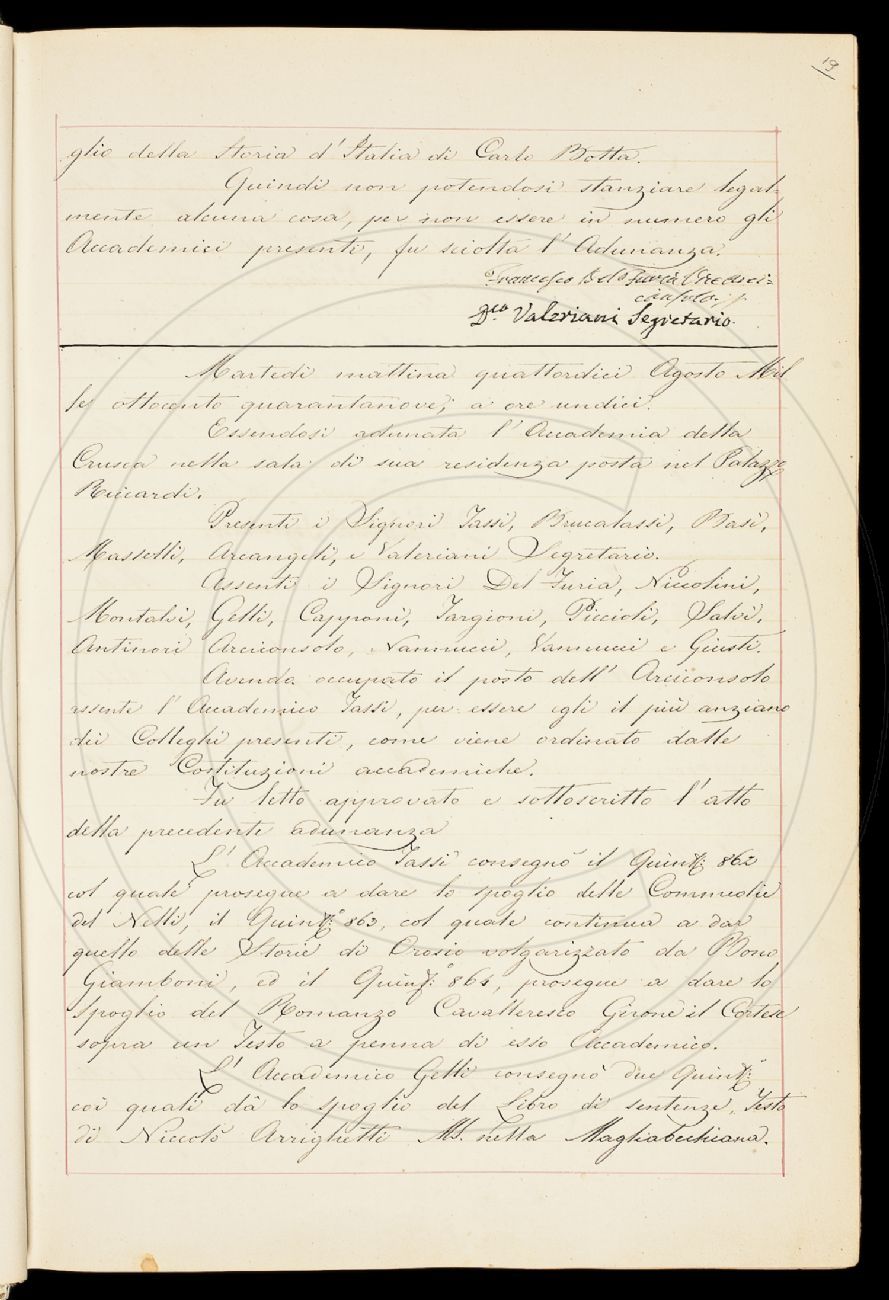 19
glio della Storia d'Italia di Carlo Botta.
Quindi non potendosi stanziare legal-
mente alcuna cosa, per non essere in numero gli
Accademici presenti, fu sciolta l'Adunanza.
Francesco Del Furia Vice arci=
consolo.
Dco Valeriani Segretario.
Martedì mattina quattordici Agosto Mil
le ottocento quarantanove, a ore undici.
Essendosi adunata l'Accademia della
Crusca nella sala di sua residenza posta nel Palazzo
Riccardi.
Presenti i Signori Tassi, Brucalassi, Basi,
Masselli, Arcangeli, e Valeriani Segretario.
Assenti i Signori Del Furia, Niccolini,
Montalvi, Gelli, Capponi, Targioni, Piccioli, Salvi,
Antinori Arciconsolo, Nannucci, Vannucci e Giusti.
Avendo occupato il posto dell' Arciconsolo
assente l'Accademico Tassi, per essere egli il più anziano
dei Colleghi presenti, come viene ordinato dalle
nostre Costituzioni accademiche.
Fu letto approvato e sottoscritto l'atto
della precedente adunanza
L'Accademico Tassi consegnò il Quint: 862
col quale prosegue a dare lo spoglio delle Commedie
del Nelli, il Quint: 863, col quale continua a dar
quello delle Storie di Orosio volgarizzato da Bono
Giamboni, ed il Quint: 864, prosegue a dare lo
Spoglio del Romanzo Cavalleresco Girone il Cortese
sopra un Testo a penna di esso Accademico.
L'Accademico Gelli consegnò due Quint:
coi quali dà lo spoglio del Libro di sentenze, Testo
di Niccolò Arrighetti Ms. nella Magliabechiana.